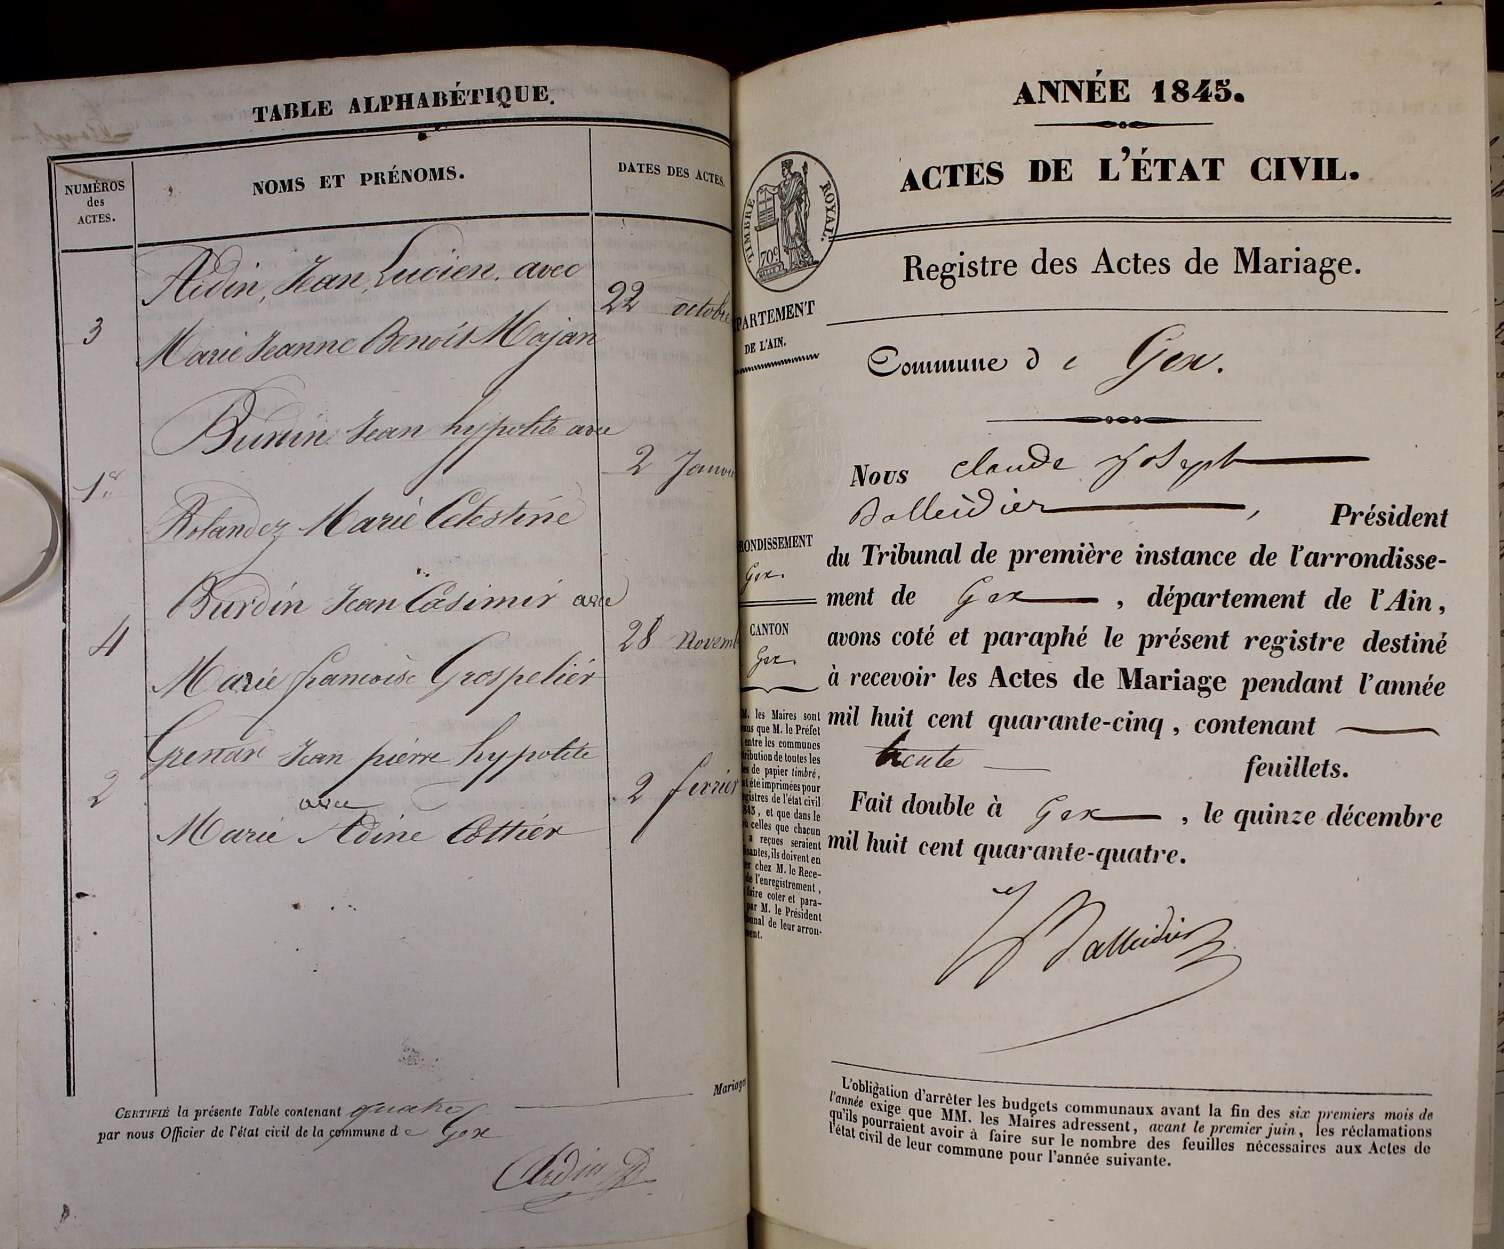 TABLE ALPHABÉTIQUE.
NUMÉROS
des
ACTES.
NOMS ET PRÉNOMS.
DATES DES ACTES.
Jean, Lucien, avec
22 octobre
3
Marie Jeanne Benoit Majan
Jean hypolite avec
2 Janvi
1er
Rolandez Marie Célestine
Burdin Jean Casimir avec
28 Novemb
4
Marie francoise Grospelier
Jean pierre hypolite
avec
2
2 fevrier
Marie Adine Cottier
Mariages
CERTIFIÉ la présente Table contenant quatre
par nous Officier de l'état civil de la commune de Gex
ANNÉE 1845.
ACTES DE L'ÉTAT CIVIL.
TIMBRE ROYAL.
70c
Registre des Actes de Mariage.
PARTEMENT
DE L'AIN.
Commune de Gex.
Nous claude joseph
Balleidier, Président
du Tribunal de première instance de l'arrondisse-
ment de Gex, département de l'Ain,
avons coté et paraphé le présent registre destiné
à recevoir les Actes de Mariage pendant l'année
mil huit cent quarante-cinq, contenant
trente feuillets.
Fait double à Gex, le quinze décembre
mil huit cent quarante-quatre.
Balleidier
RONDISSEMENT
Gex.
CANTON
Gex.
M. les Maires sont
nus que M. le Préfet
entre les communes
tribution de toutes les
les de papier timbré,
t été imprimées pour
gistres de l'état civil
845, et que dans le
celles que chacun
a reçues seraient
santes, ils doivent en
er chez M. le Rece-
de l'enregistrement,
faire coter et para-
par M. le Président
bunal de leur arron-
ment.
L'obligation d'arrêter les budgets communaux avant la fin des six premiers mois de
l'année exige que MM. les Maires adressent, avant le premier juin, les réclamations
qu'ils pourraient avoir à faire sur le nombre des feuilles nécessaires aux Actes de
l'état civil de leur commune pour l'année suivante.